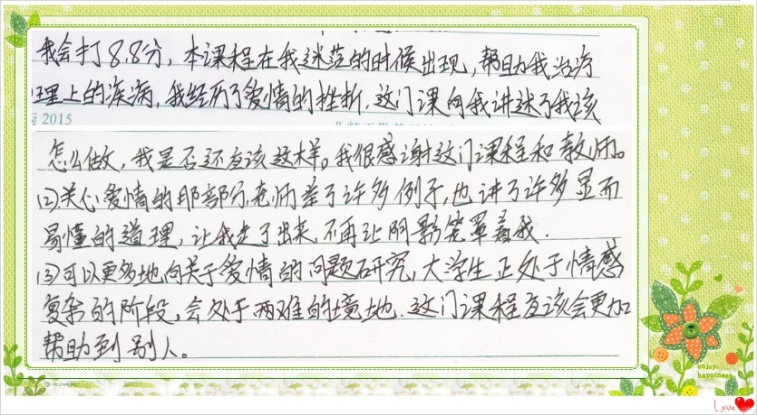 我会打8.8分，本课程在我迷茫的时候出现，帮助我治疗
理上的疾病，我经历了爱情的挫折，这门课向我讲述了我该
2015
怎么做，我是否还应该这样。我很感谢这门课程和教师。
(2)关心爱情的那部分，老师举了许多例子，也讲了许多显而
易懂的道理，让我走了出来，不再让阴影笼罩着我.
(3)可以更多地向关于爱情的问题研究，大学生正处于情感
复杂的阶段，会处于两难的境地.这门课程应该会更加
帮助到别人。
enjoy
happiness
Love